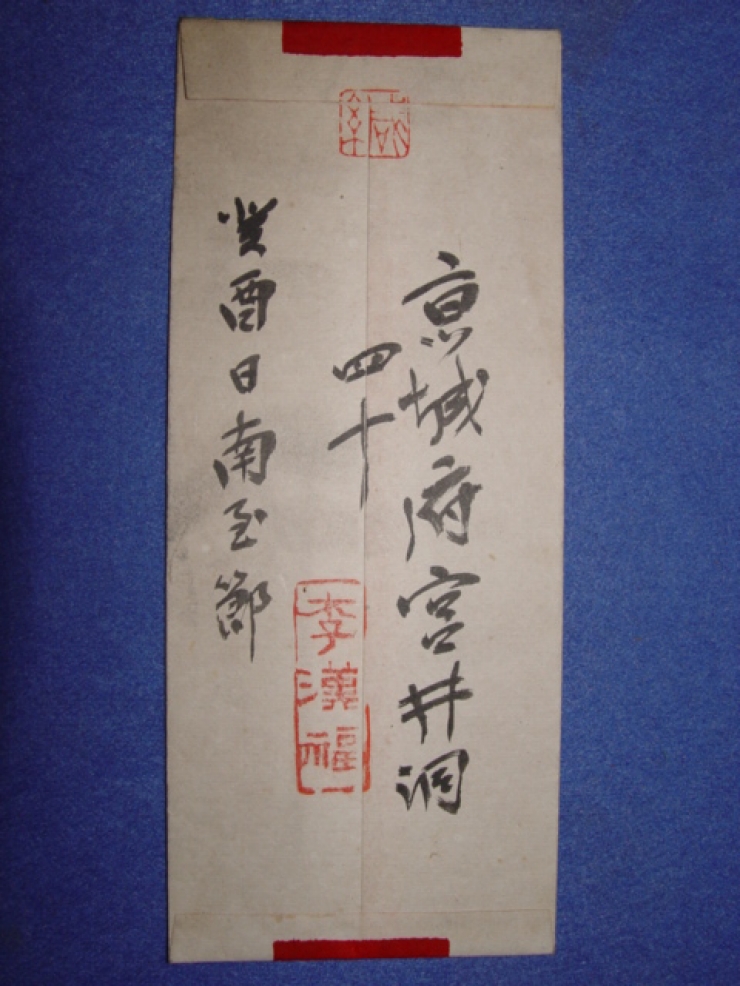 京城府宮井洞
四十
李漢福
癸酉日南至節